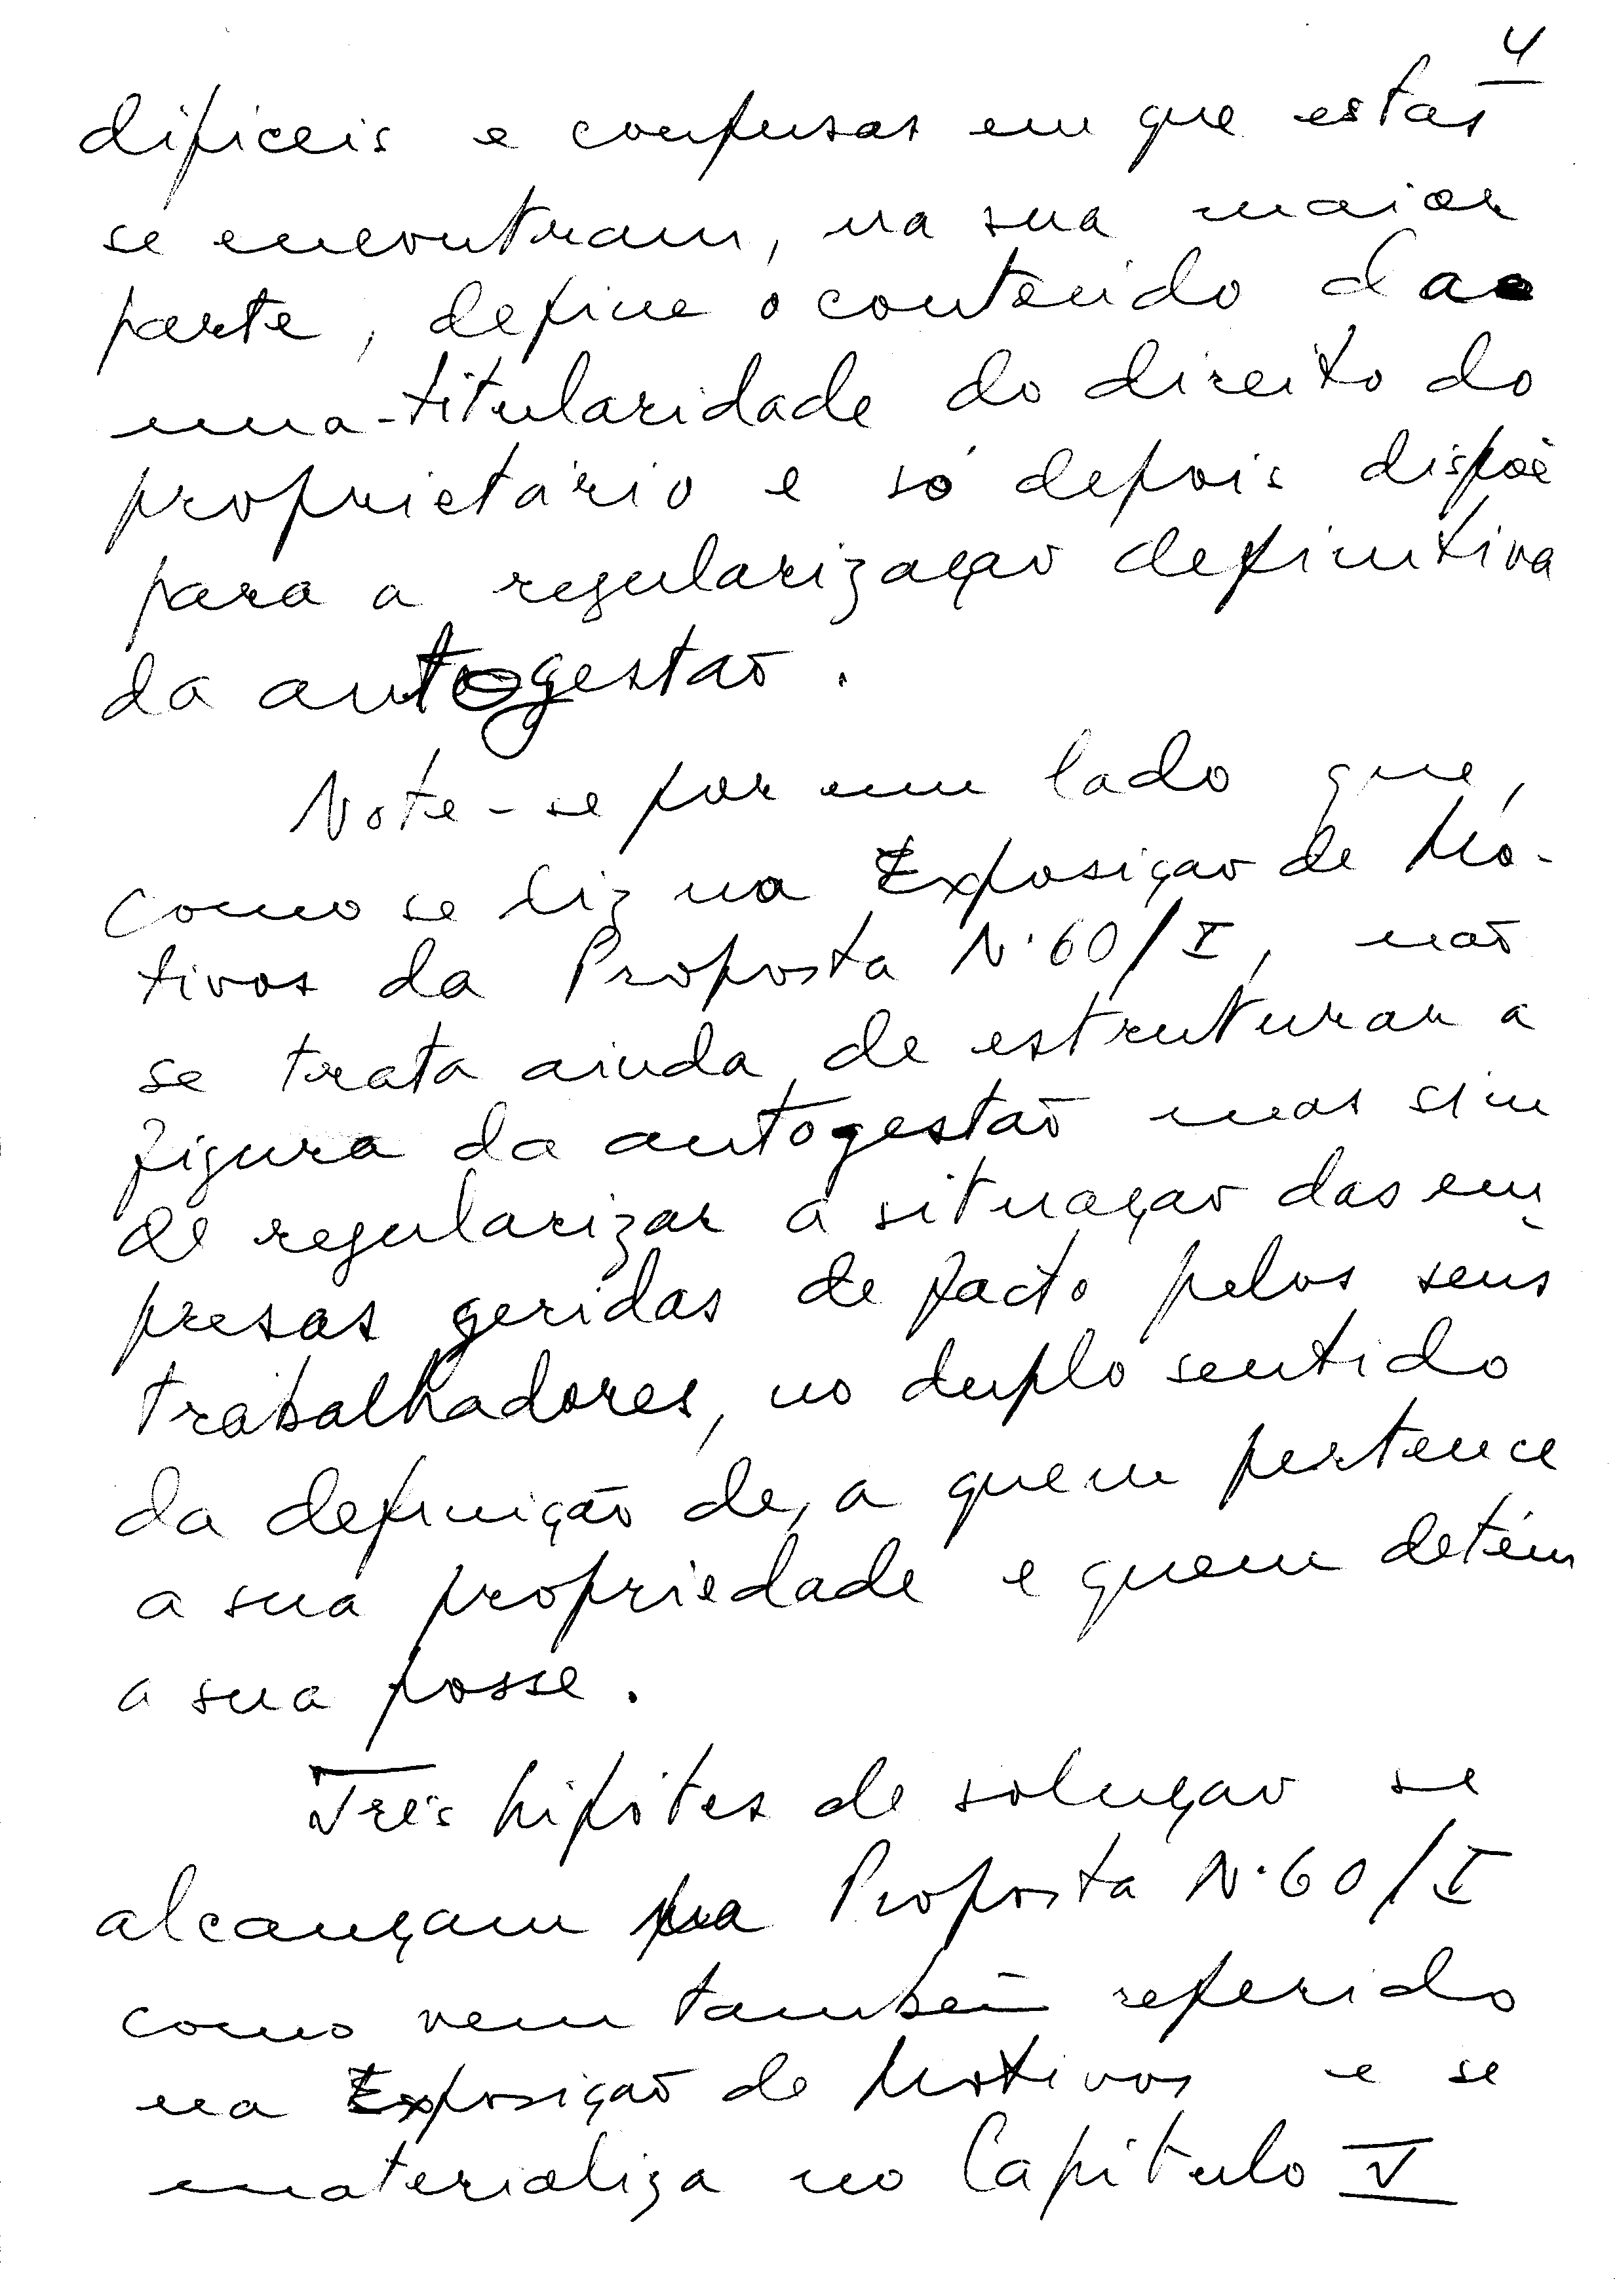 4
difíceis e confusas em que estas
se encontram, na sua maior
parte, define o conteúdo da
nua-titularidade do direito do
proprietário e só depois dispõe
para a regularização definitiva
da autogestão.
Note-se por um lado que,
como se diz na Exposição de Mo-
tivos da Proposta N.60/I, não
se trata ainda, de estruturar a
figura da autogestão mas sim
de regularizar a situação das em-
presas geridas de facto pelos seus
trabalhadores, no duplo sentido
da definição de, a quem pertence
a sua propriedade e quem detém
a sua posse.
Três hipótes de solução se
alcançam na Proposta N.60/I
como vem também referido
na Exposição de Motivos e se
materializa no Capítulo V